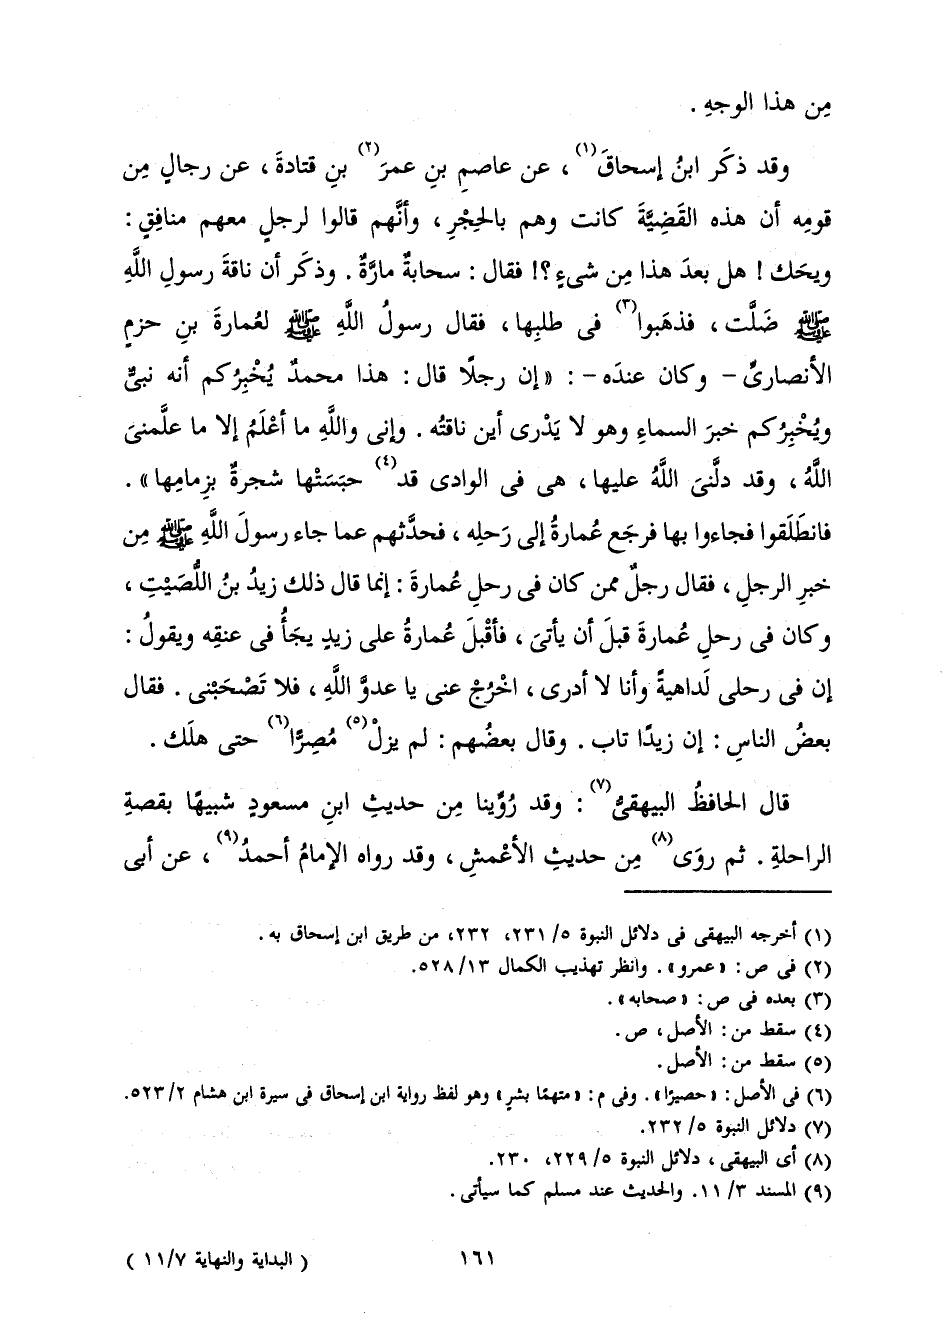 مِن هذا الوجهِ .
وقد ذكَر ابنُ إسحاقَ(١) ، عن عاصمِ بنِ عمرَ(٢) بنِ قتادةَ ، عن رجالٍ مِن
قومِه أن هذه القَضِيَّةَ كانت وهم بالحِجْرِ ، وأنَّهم قالوا لرجلٍ معهم منافقٍ :
ويحَك ! هل بعدَ هذا مِن شىءٍ ؟! فقال : سحابةٌ مارَّةٌ . وذكَر أن ناقةَ رسولِ اللَّهِ
ﷺ ضَلَّت ، فذهَبوا(٣) فى طلبِها ، فقال رسولُ اللَّهِ ﷺ لعُمارةَ بنِ حزمٍ
الأنصارىِّ - وكان عندَه - : « إن رجلًا قال : هذا محمدٌ يُخْبِرُكم أنه نبىٌّ
ويُخْبِرُكم خبرَ السماءِ وهو لا يَدْرى أين ناقتُه . وإنى واللَّهِ ما أعْلَمُ إلا ما علَّمنىَ
اللَّهُ ، وقد دلَّنىَ اللَّهُ عليها ، هى فى الوادى قد(٤) حبَسَتْها شجرةٌ بزِمامِها » .
فانطَلَقوا فجاءوا بها فرجَع عُمارةُ إلى رَحلِه ، فحدَّثهم عما جاء رسولَ اللَّهِ ﷺ مِن
خبرِ الرجلِ ، فقال رجلٌ ممن كان فى رحلِ عُمارةَ : إنما قال ذلك زيدُ بنُ اللُّصَيْتِ ،
وكان فى رحلِ عُمارةَ قبلَ أن يأتىَ ، فأقْبلَ عُمارةُ على زيدٍ يجَأُ فى عنقِه ويقولُ :
إن فى رحلى لَداهيةً وأنا لا أدرى ، اخْرُجْ عنى يا عدوَّ اللَّهِ ، فلا تَصْحَبْنى . فقال
بعضُ الناسِ : إن زيدًا تاب . وقال بعضُهم : لم يزلْ(٥) مُصِرًّا(٦) حتى هلَك .
قال الحافظُ البيهقىُّ(٧) : وقد رُوِّينا مِن حديثِ ابنِ مسعودٍ شبيهًا بقصةِ
الراحلةِ . ثم روَى(٨) مِن حديثِ الأعْمشِ ، وقد رواه الإمامُ أحمدُ(٩) ، عن أبى
(١) أخرجه البيهقى فى دلائل النبوة ٥/ ٢٣١، ٢٣٢، من طريق ابن إسحاق به .
(٢) فى ص : « عمرو » . وانظر تهذيب الكمال ١٣/ ٥٢٨.
(٣) بعده فى ص : « صحابه » .
(٤) سقط من : الأصل ، ص .
(٥) سقط من : الأصل.
(٦) فى الأصل : « حصيرًا » . وفى م : « متهمًا بشرٍ » وهو لفظ رواية ابن إسحاق فى سيرة ابن هشام ٢/ ٥٢٣.
(٧) دلائل النبوة ٥/ ٢٣٢.
(٨) أى البيهقى ، دلائل النبوة ٥/ ٢٢٩، ٢٣٠.
(٩) المسند ٣/ ١١. والحديث عند مسلم كما سيأتى .
١٦١
( البداية والنهاية ١١/٧ )